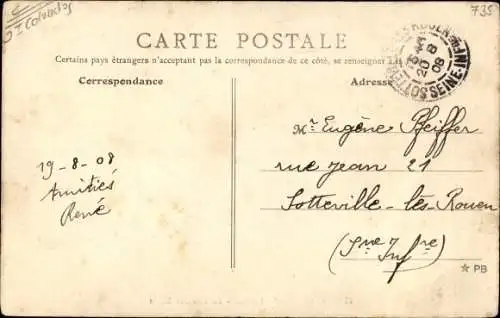 Calvados
735
CARTE POSTALE
Certains pays étrangers n'acceptant pas la correspondance de ce côté, se renseigner
Correspondance
Adresse
20 8
08
SEINE INF
Mr Eugène Pfeiffer
rue Jean 21
Sotteville-lès-Rouen
(Sne Infre)
19-8-08
Amitiés
René
☆ PB